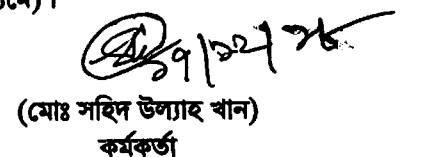 ১৭/১২/২৮
(মোঃ সহিদ উল্যাহ খান)
কর্মকর্তা